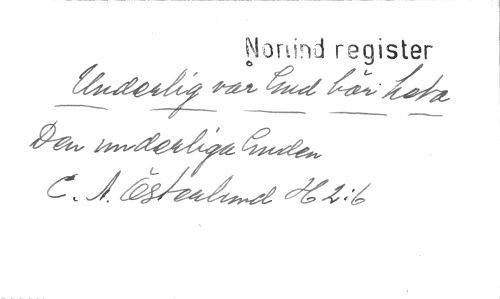 Norlind register
Underlig var Gud bör heta
Den underliga Guden
C. A. Österlund H 2:6